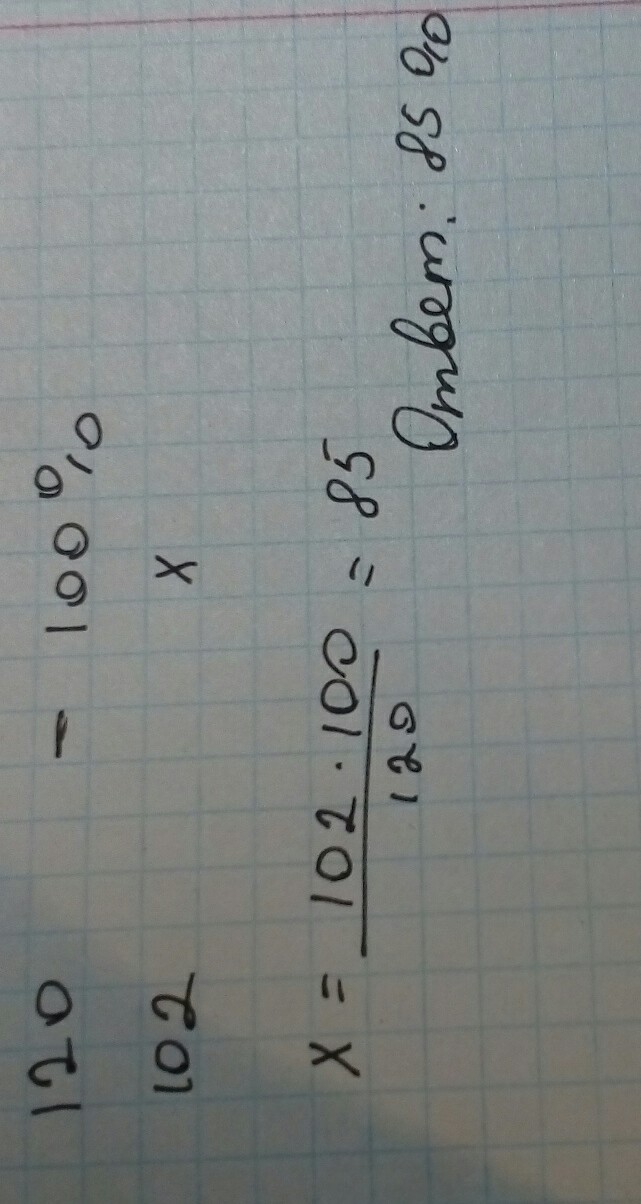 120 - 100%
102 x
x = 102 · 100 / 120 = 85
Ответ: 85%